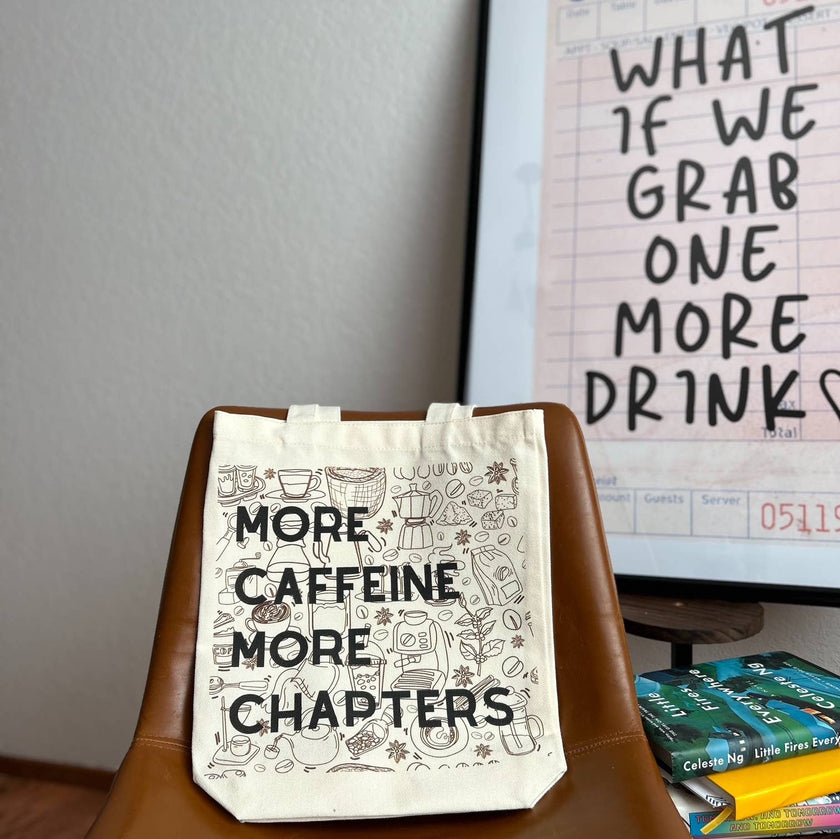 Date Table
WHAT
IF WE
GRAB
ONE
MORE
DRINK
Total
Guests Server
05119
MORE
CAFFEINE
MORE
CHAPTERS
Little
Fires
Everywhere
Celeste Ng
Celeste Ng Little Fires Every
AND TOMORROW
AND TOMORROW